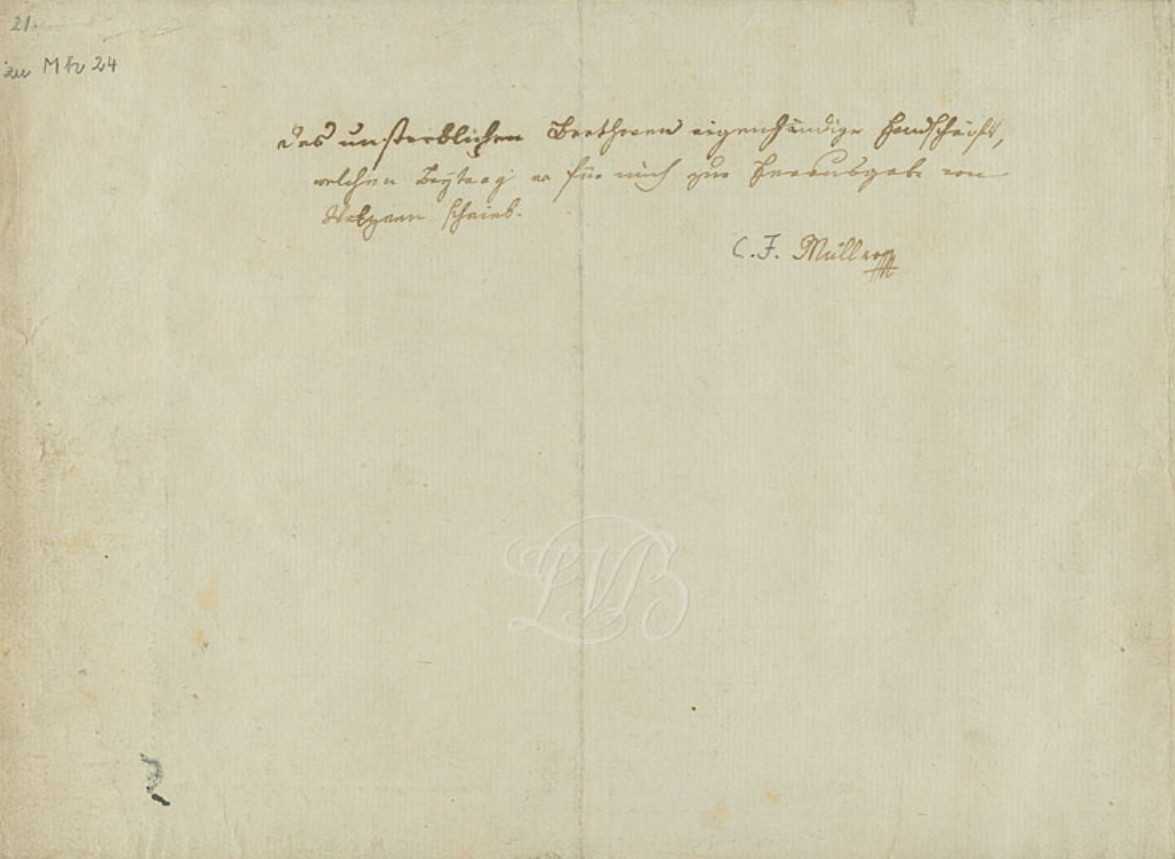 21.
zu Mh 24
Des unsterblichen Beethoven eigenhändige Handschrift,
welchen Beÿtrag er für mich zur Herausgabe von
Walzern schrieb.
C. F. Müller
LVB